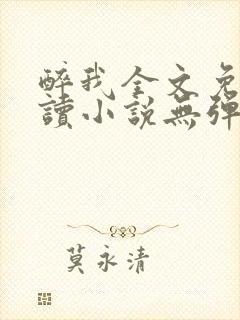 醉我全文免
讀小說無彈
莫永清